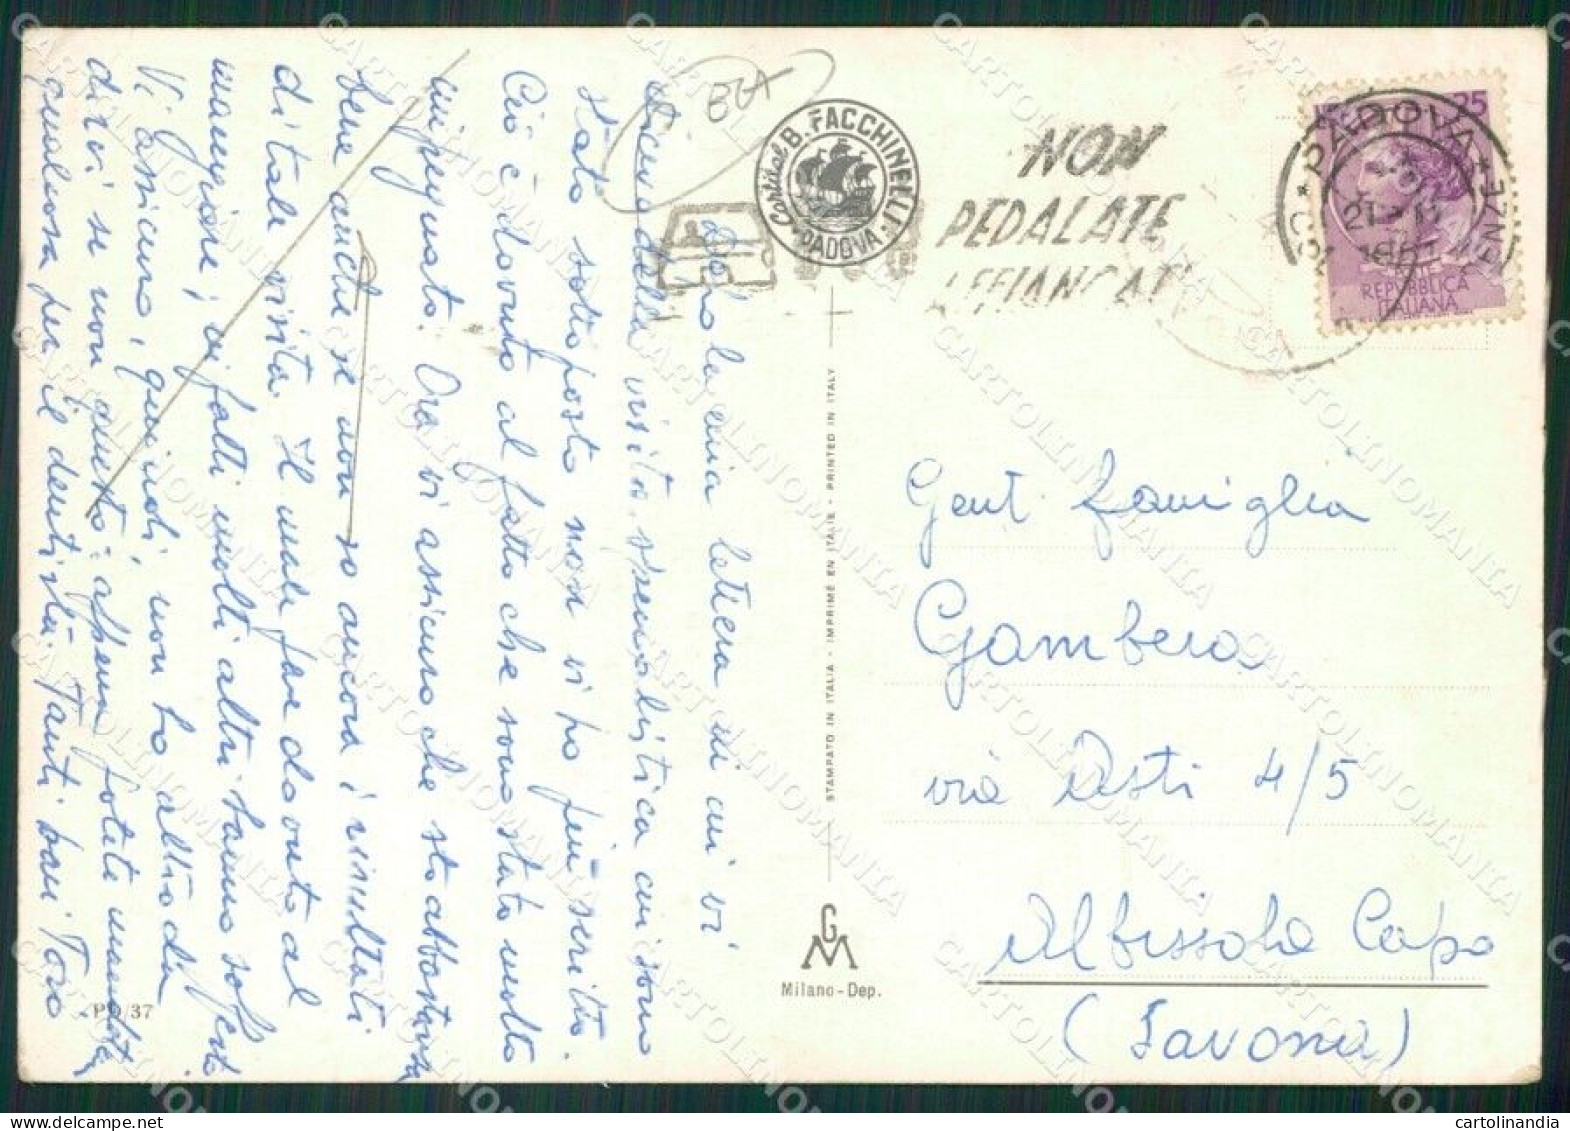 Dopo la mia lettera in cui vi
dicevo della visita specialistica cui sono
stato sottoposto non vi ho più scritto.
Ciò è dovuto al fatto che sono stato molto
impegnato. Ora vi assicuro che sto abbastanza
bene anche se non so ancora i risultati
di tale visita. Il male fare dovuto al
maggiore; infatti molti altri hanno sofferto
Vi assicuro, quindi, non ho altro da
dirvi se non questo: appena potete mandate
qualcosa per il dentista. Tanti baci
PD/37
B. FACCHINELLI
PADOVA
NON
PEDALATE
AFFIANCATI
PADOVA
25
REPVBBLICA
ITALIANA
STAMPATO IN ITALIA - IMPRIMÉ EN ITALIE - PRINTED IN ITALY
GM
Milano - Dep.
Gent. famiglia
Gambero
via Asti 4/5
Albissola Capo
(Savona)
CARTOLINOMANIA
cartolinandia